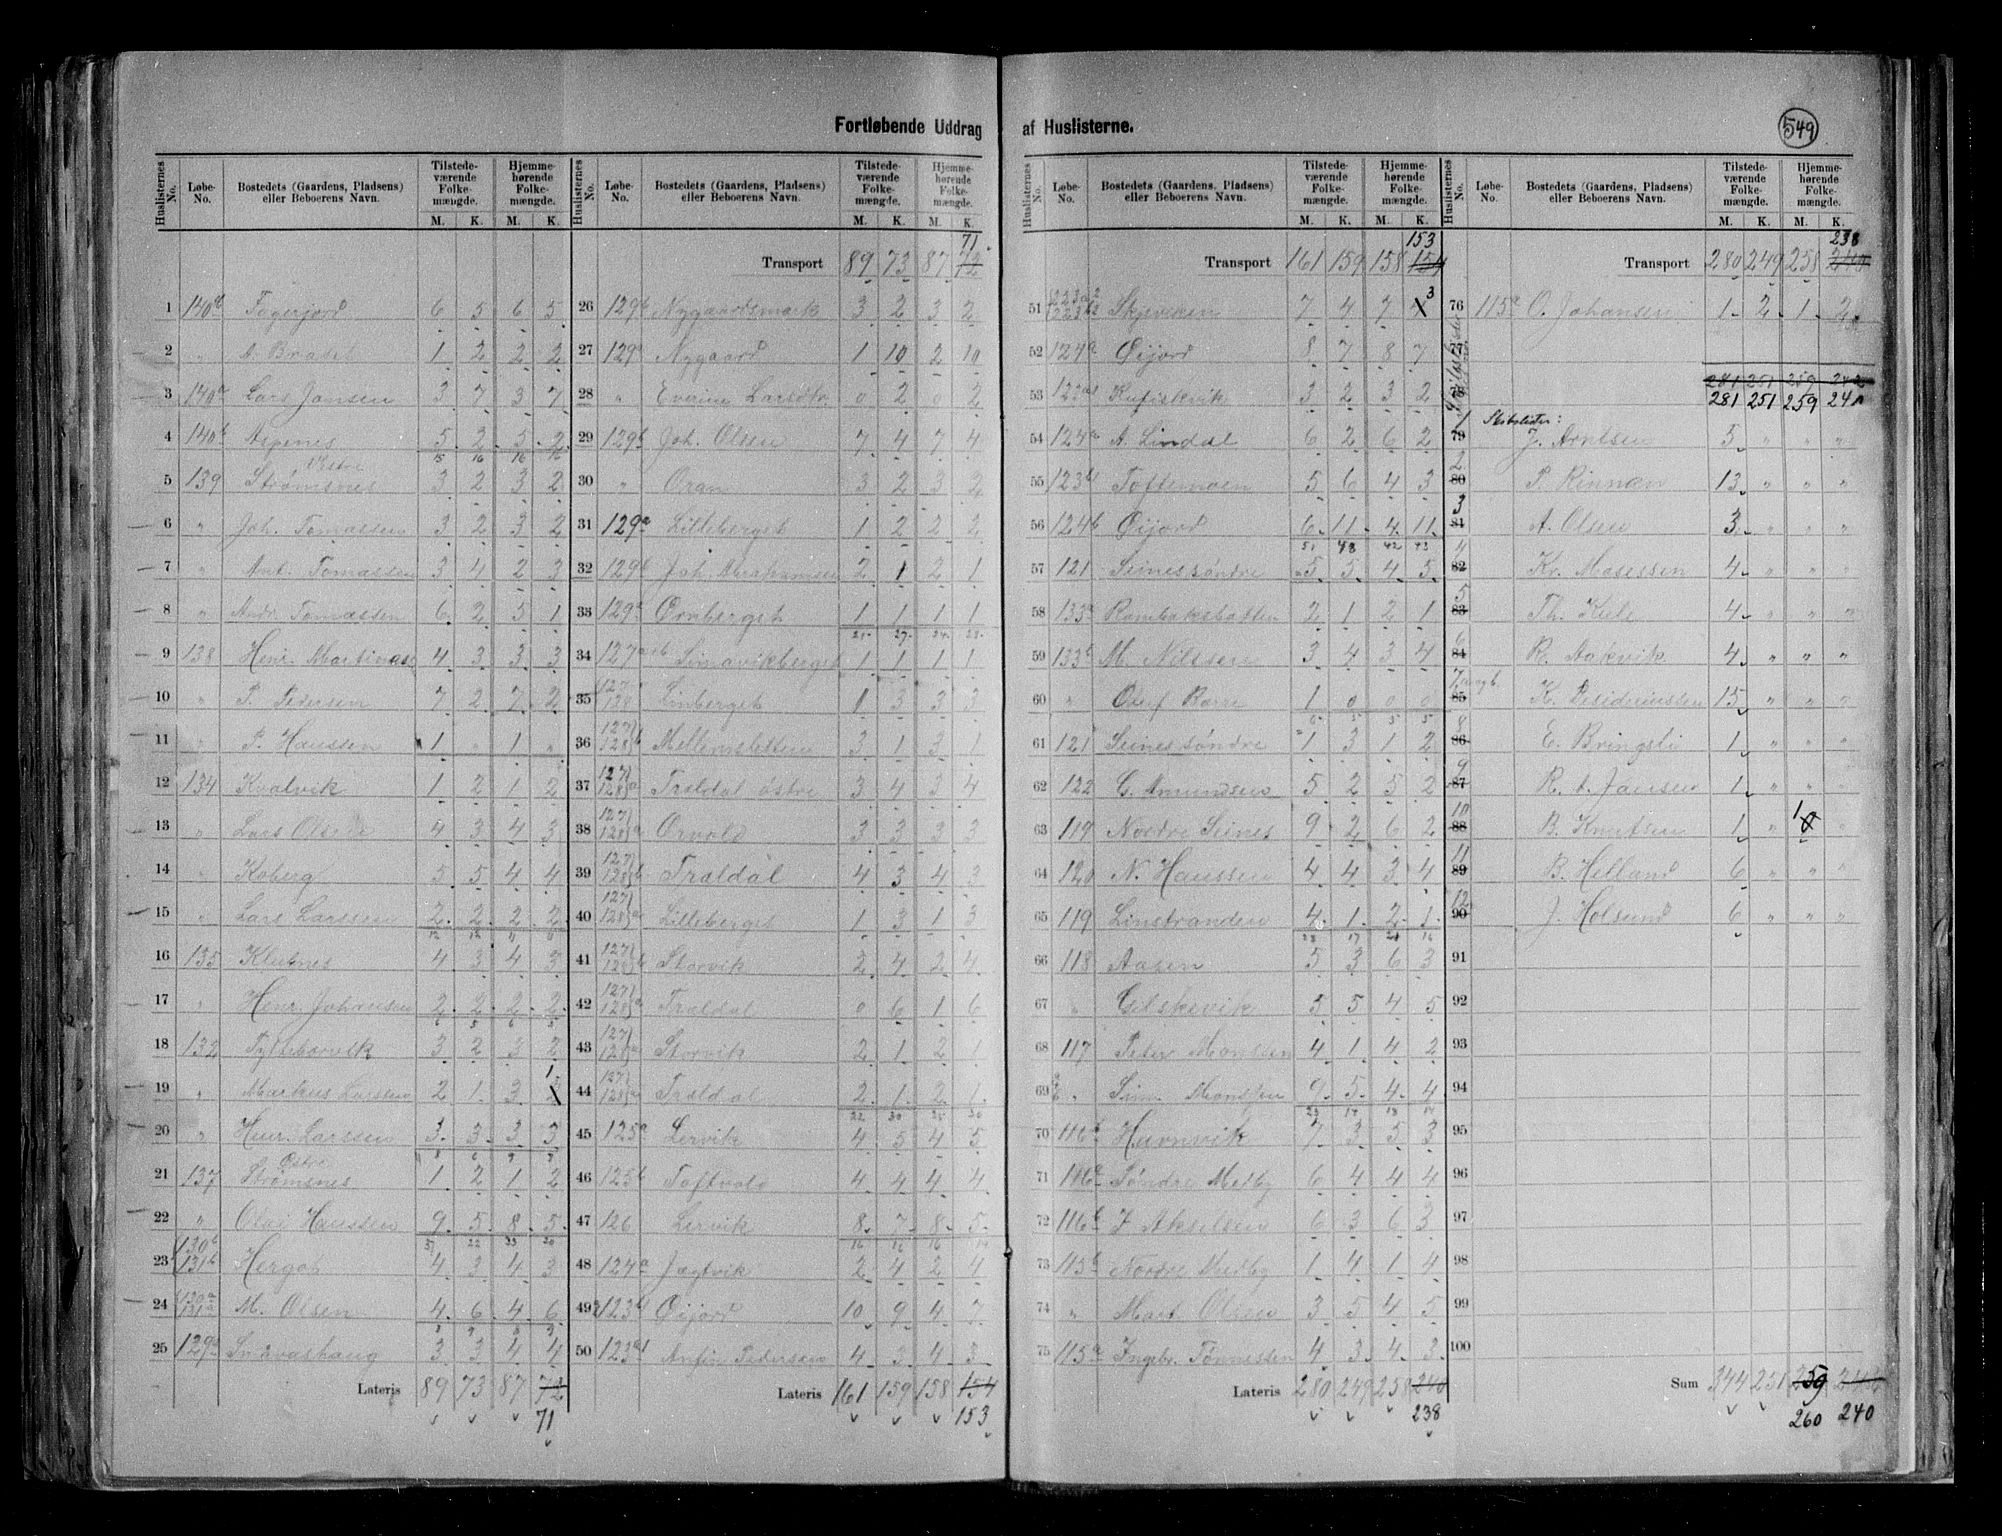 Fortløbende Uddrag af Huslisterne.
549
Huslisternes No. | Løbe-No. | Bostedets (Gaardens, Pladsens) eller Beboerens Navn. | Tilstedeværende Folkemængde. M. K. | Hjemmehørende Folkemængde. M. K.
1 140b Fagerjord 6 5 6 5
2 " A. 1 2 2 2
3 140a Lars Jansen 3 7 3 7
4 140b Aspenes 5 2 5 2
5 139 Strømsnes Vestre 3 2 3 2
6 " Joh. Tomassen 3 2 3 2
7 " Ant. Tomassen 3 4 2 3
8 " Andr. Tomassen 6 2 5 1
9 138 Henr. 4 3 3 3
10 " P. Pedersen 7 2 7 2
11 " P. Hanssen 1 " 1 "
12 134 Kvalvik 1 2 1 2
13 " Lars Olsen 4 3 4 3
14 " Koberg 5 5 4 4
15 " Lars Larssen 2 2 2 2
16 135 Klubnes 4 3 4 3
17 " Henr. Johansen 2 2 2 2
18 132 Tyttebærvik 3 2 3 2
19 " Markus Larssen 2 1 3 1
20 " Henr. Larssen 3 3 3 3
21 137 Strømsnes Østre 1 2 1 2
22 " Olai Hanssen 9 5 8 5
23 130b 131b Hergot 4 3 4 3
24 130a 131a M. Olsen 4 6 4 6
25 129a 3 3 4 4
Lateris 89 73 87 72
71
Transport 89 73 87 72 71
26 129b Nygaardsmark 3 2 3 2
27 129a Nygaard 1 10 2 10
28 " Everine Larsdtr. 0 2 0 2
29 129b Joh. Olsen 7 4 7 4
30 " Oran 3 2 3 2
31 129a Lilleberget 1 2 2 2
32 129b Joh. Abrahamsen 2 1 2 1
33 129a Ornberget 1 1 1 1
34 127 Simavikberget 1 1 1 1
35 127 128 Linberget 1 3 3 3
36 127 128b Mellemsletten 3 1 3 1
37 127 128a Traldal østre 3 4 3 4
38 127 128a Orvald 3 3 3 3
39 127 128b Traldal 4 3 4 3
40 127 128a Lilleberget 1 3 1 3
41 127 128b Storvik 2 4 2 4
42 127 128a Traldal 0 6 1 6
43 127 128a Storvik 2 1 2 1
44 127 128a Traldal 2 1 2 1
45 125a Lervik 4 5 4 5
46 125b Toftvold 4 4 4 4
47 126 Lervik 8 7 8 5
48 124a Jægtvik 2 4 2 4
49 123b Øijord 10 9 4 7
50 123a1 Anfin Pedersen 4 3 4 3
Lateris 161 159 158 154
153
Transport 161 159 158 154 153
51 223a2 223b2 Skjeviken 7 4 7 3
52 124a Øijord 8 7 8 7
53 123a1 Kufiskvik 3 2 3 2
54 124a A. Lindal 6 2 6 2
55 123b Toftemoen 5 6 4 3
56 124b Øijord 6 11 4 11
57 121 Seines søndre 5 5 4 5
58 133a Rombaksbotten 2 1 2 1
59 133b M. Nilssen 3 4 3 4
60 " Oluf 1 0 0 0
61 121 Seines søndre 1 3 1 2
62 122 C. Amundsen 5 2 5 2
63 119 Nordre Seines 9 2 6 2
64 120 N. Hanssen 4 4 3 4
65 119 Linstranden 4 1 2 1
66 118 Aasen 5 3 6 3
67 " Gilskevik 5 5 4 5
68 117 Peter Monssen 4 1 4 2
69 " Sim. Monssen 9 5 4 4
70 116b Havnvik 7 3 5 3
71 116a Søndre Medby 6 4 4 4
72 116b J. Akselsen 6 3 6 3
73 115b Nordre Medby 1 4 1 4
74 " Mart. Olsen 3 5 4 5
75 115a Ingebr. Tønnessen 4 3 4 3
Lateris 280 249 258 240
238
Transport 280 249 258 240 238
76 115a O. Johansen 1 2 1 2
77
78
281 251 259 242
281 251 259 240
Skibslister:
1 79 J. Arntsen 5 " " "
2 80 P. Rinnan 13 " " "
3 81 A. Olsen 3 " " "
4 82 Kr. Mosessen 4 " " "
5 83 Th. Kiil 4 " " "
6 84 R. Aakvik 4 " " "
7 85 K. 15 " " "
8 86 E. Bringsli 1 " " "
9 87 R. A. Jansen 1 " " "
10 88 B. Knutsen 1 " 1 "
11 89 B. Helland 6 " " "
12 90 J. Holsund 6 " " "
91
92
93
94
95
96
97
98
99
100
Sum 344 251 259 242
260 240